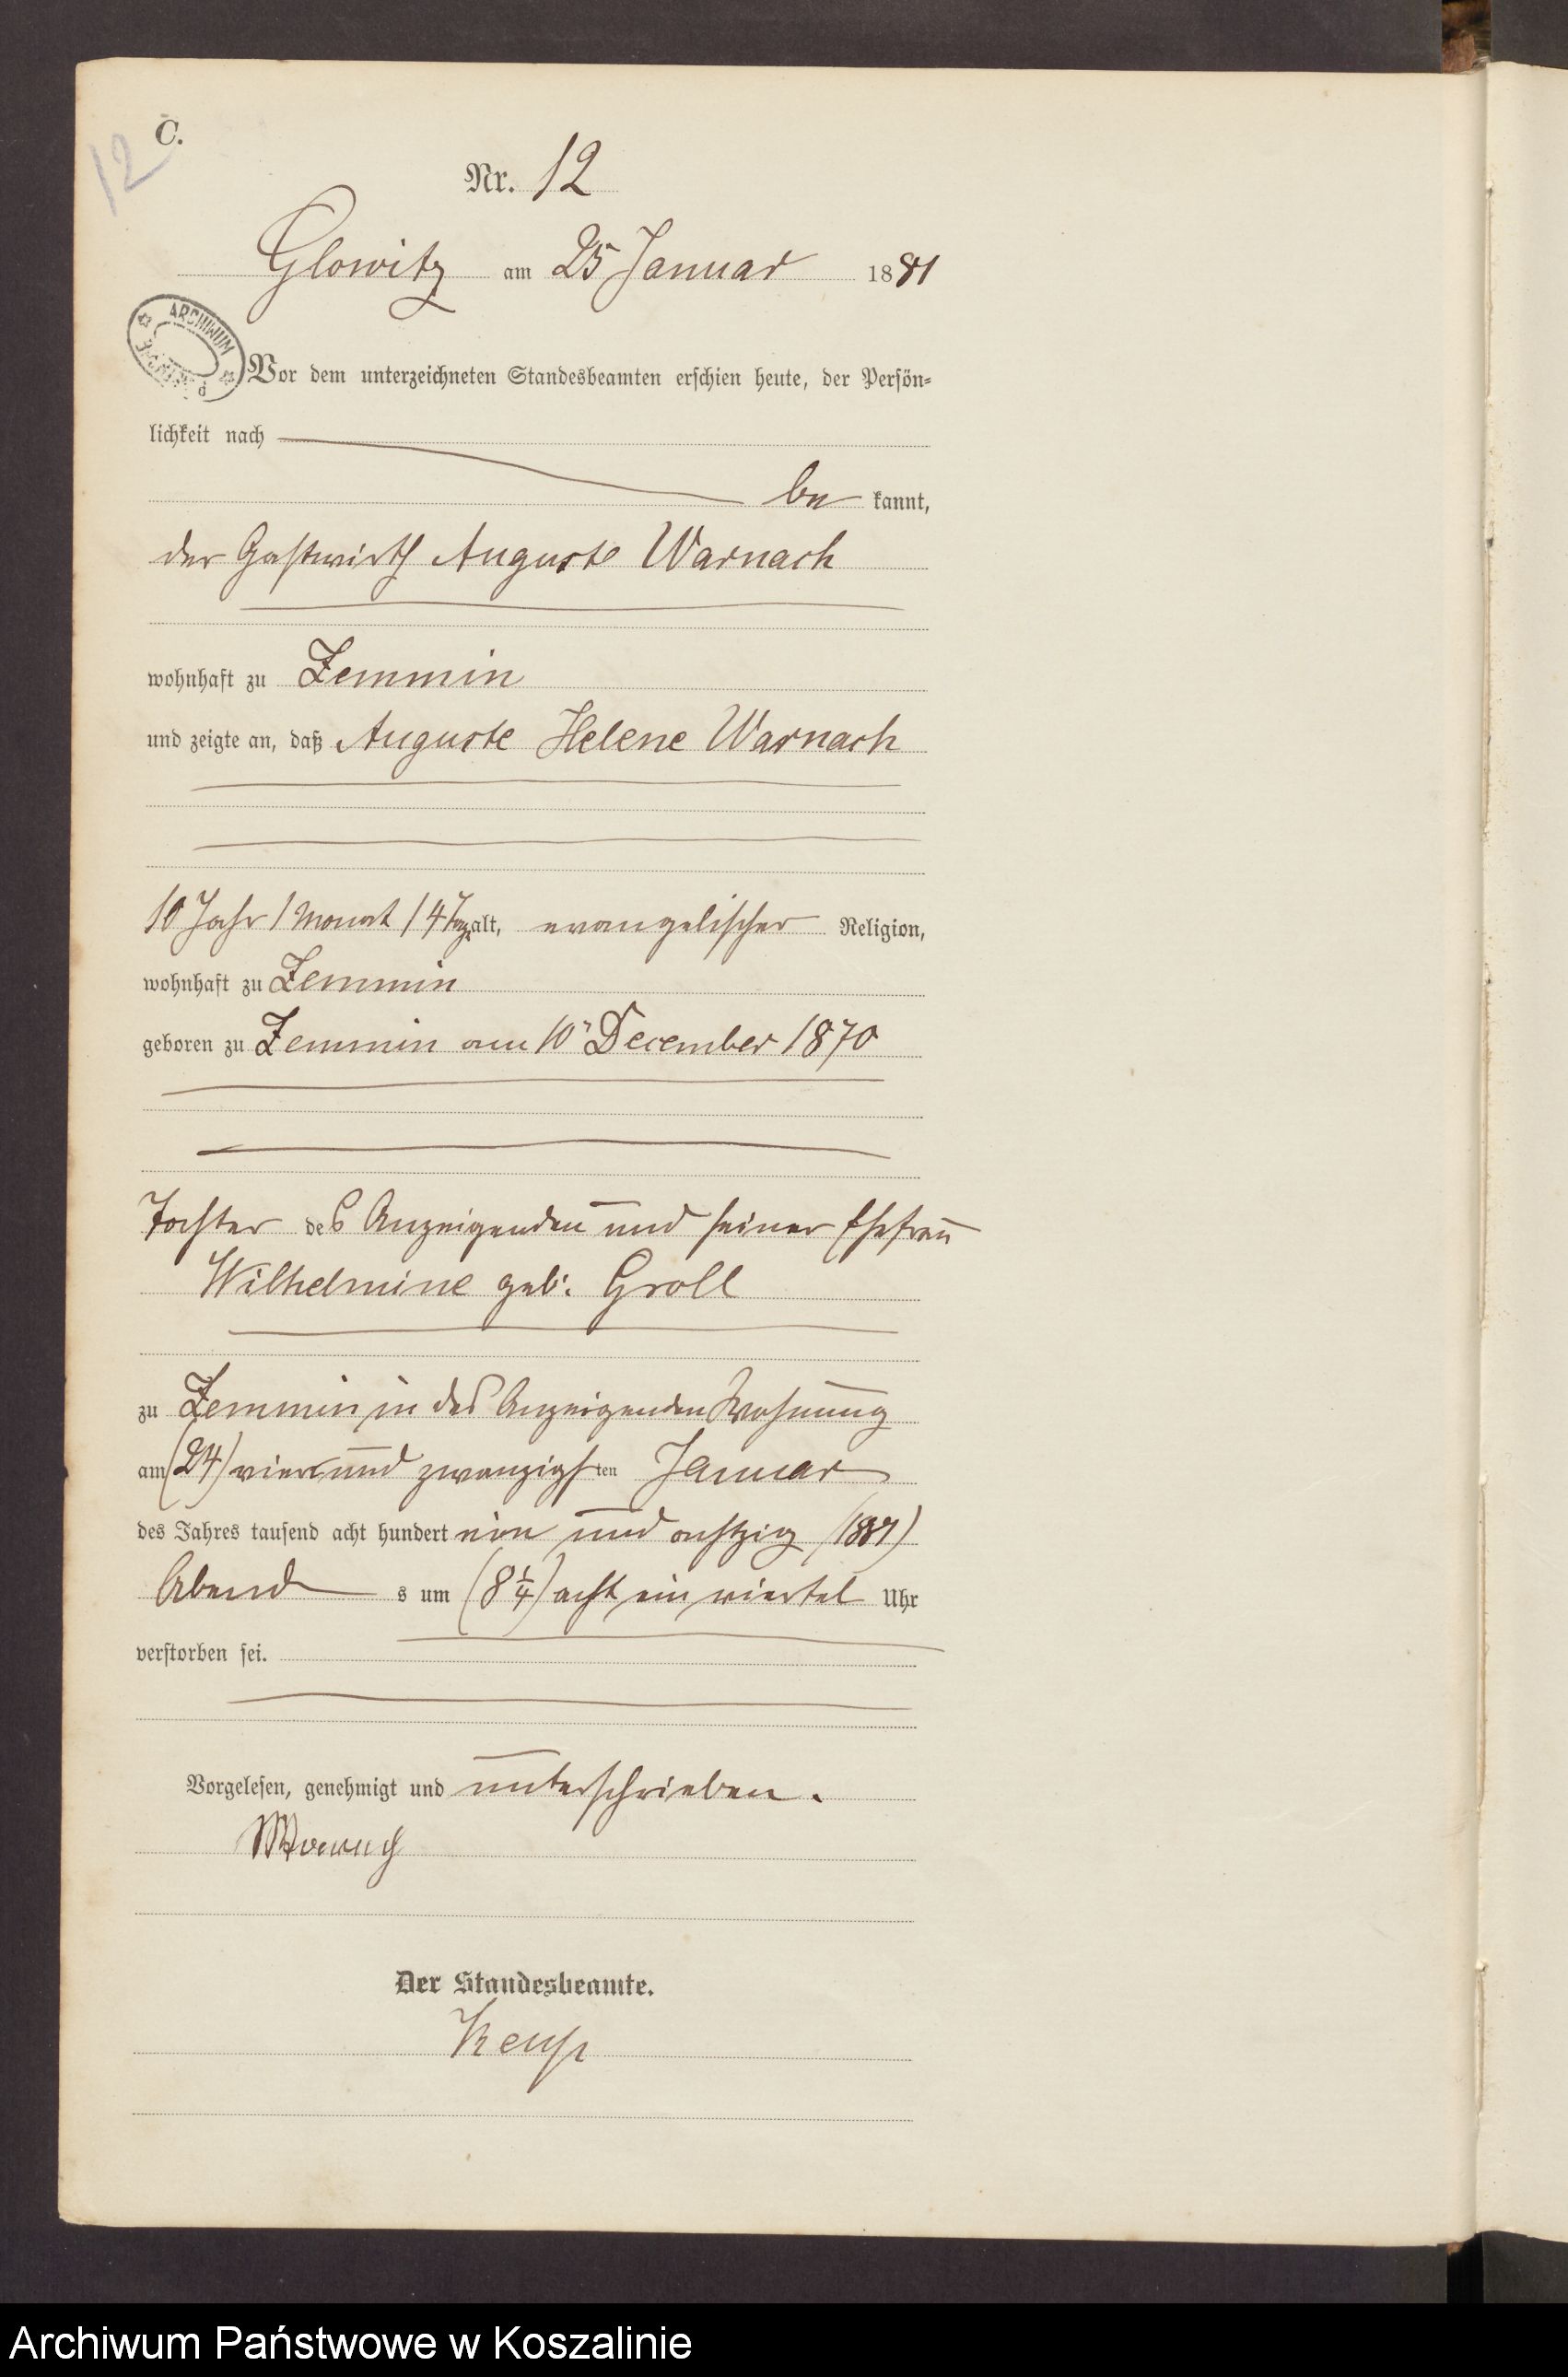 C.
12
Nr. 12
Glowitz am 25 Januar 1881
ARCHIWUM
Vor dem unterzeichneten Standesbeamten erschien heute, der Persön-
lichkeit nach
be kannt,
der Gastwirth Auguste Warnach
wohnhaft zu Zemmin
und zeigte an, daß Auguste Helene Warnach
10 Jahr 1 Monat 14 Tag alt, evangelischer Religion,
wohnhaft zu Zemmin
geboren zu Zemmin am 10 December 1870
Tochter des Anzeigenden und seiner Ehefrau
Wilhelmine geb: Groll
zu Zemmin in des Anzeigenden Wohnung
am (24) vier und zwanzigsten Januar
des Jahres tausend acht hundert ein und achtzig (1881)
Abend s um (8 1/4) acht ein viertel Uhr
verstorben sei.
Vorgelesen, genehmigt und unterschrieben.
Der Standesbeamte.
Archiwum Państwowe w Koszalinie